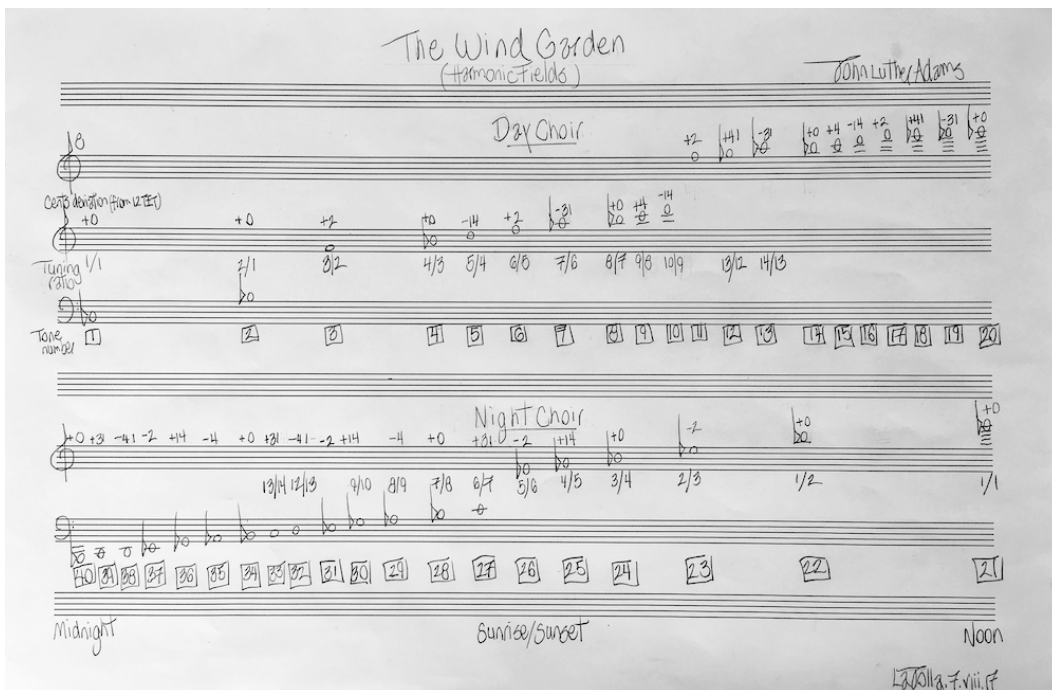 The Wind Garden
(Harmonic Fields)
John Luther Adams
8
Day Choir
+2 +41 -31 +0 +4 -14 +2 +41 -31 +0
Cents deviation (from 12TET)
+0 +0 +2 +0 -14 +2 -31 +0 +4 -14
Tuning ratio 1/1 2/1 3/2 4/3 5/4 6/5 7/6 8/7 9/8 10/9 13/12 14/13
Tone number 1 2 3 4 5 6 7 8 9 10 11 12 13 14 15 16 17 18 19 20
Night Choir
+0 +31 -41 -2 +14 -4 +0 +31 -41 -2 +14 -4 +0 +31 -2 +14 +0 -2 +0 +0
13/14 12/13 9/10 8/9 7/8 6/7 5/6 4/5 3/4 2/3 1/2 1/1
40 39 38 37 36 35 34 33 32 31 30 29 28 27 26 25 24 23 22 21
Midnight Sunrise/Sunset Noon
La Jolla. 7.viii.17